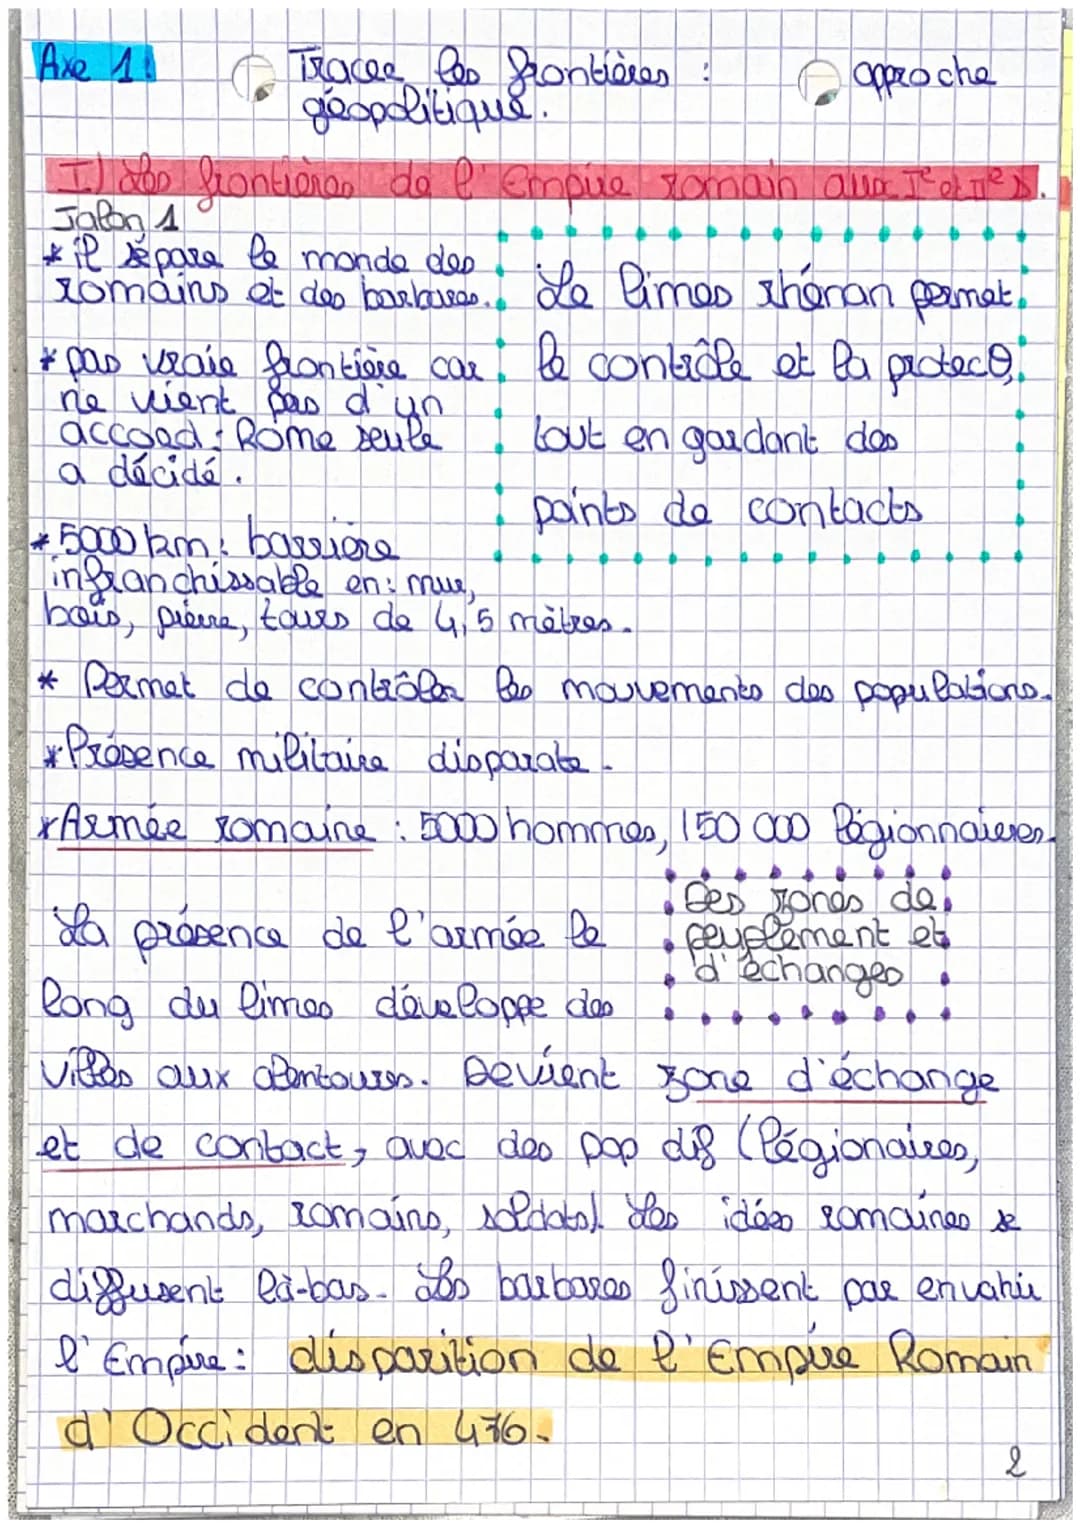 Axe 1:
Tracer les frontières : approche
géopolitique.
I) Les frontières de l'Empire romain aux Ie et IIe s.
Jalon 1
* il sépare le monde des
romains et des barbares.
* pas vraie frontière car
ne vient pas d'un
accord : Rome seule
a décidé.
Le limes rhénan permet
le contrôle et la protecº,
tout en gardant des
points de contacts
* 5000 km : barrière
infranchissable en : mur,
bois, pierre, tours de 4,5 mètres.
* Permet de contrôler les mouvements des populations.
* Présence militaire disparate.
* Armée romaine : 5000 hommes, 150 000 légionnaires.
Des zones de
peuplement et
d'échanges
La présence de l'armée le
long du limes développe des
villes aux alentours. Devient zone d'échange
et de contact, avec des pop dif (légionaires,
marchands, romains, soldats). Les idées romaines se
diffusent là-bas. Les barbares finissent par envahir
l'Empire : disparition de l'Empire Romain
d'Occident en 476.
2